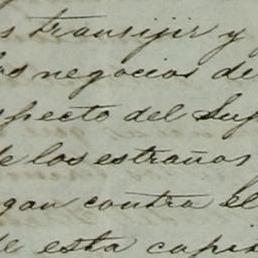 s transijir y
los negocios de
specto del Sup
de los estraños
gan contra el
de esta capit